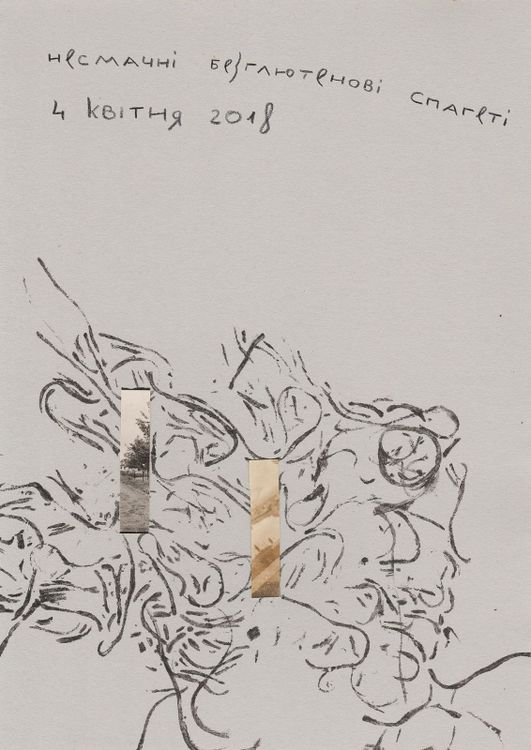 несмачні безглютенові спагеті
4 квітня 2018